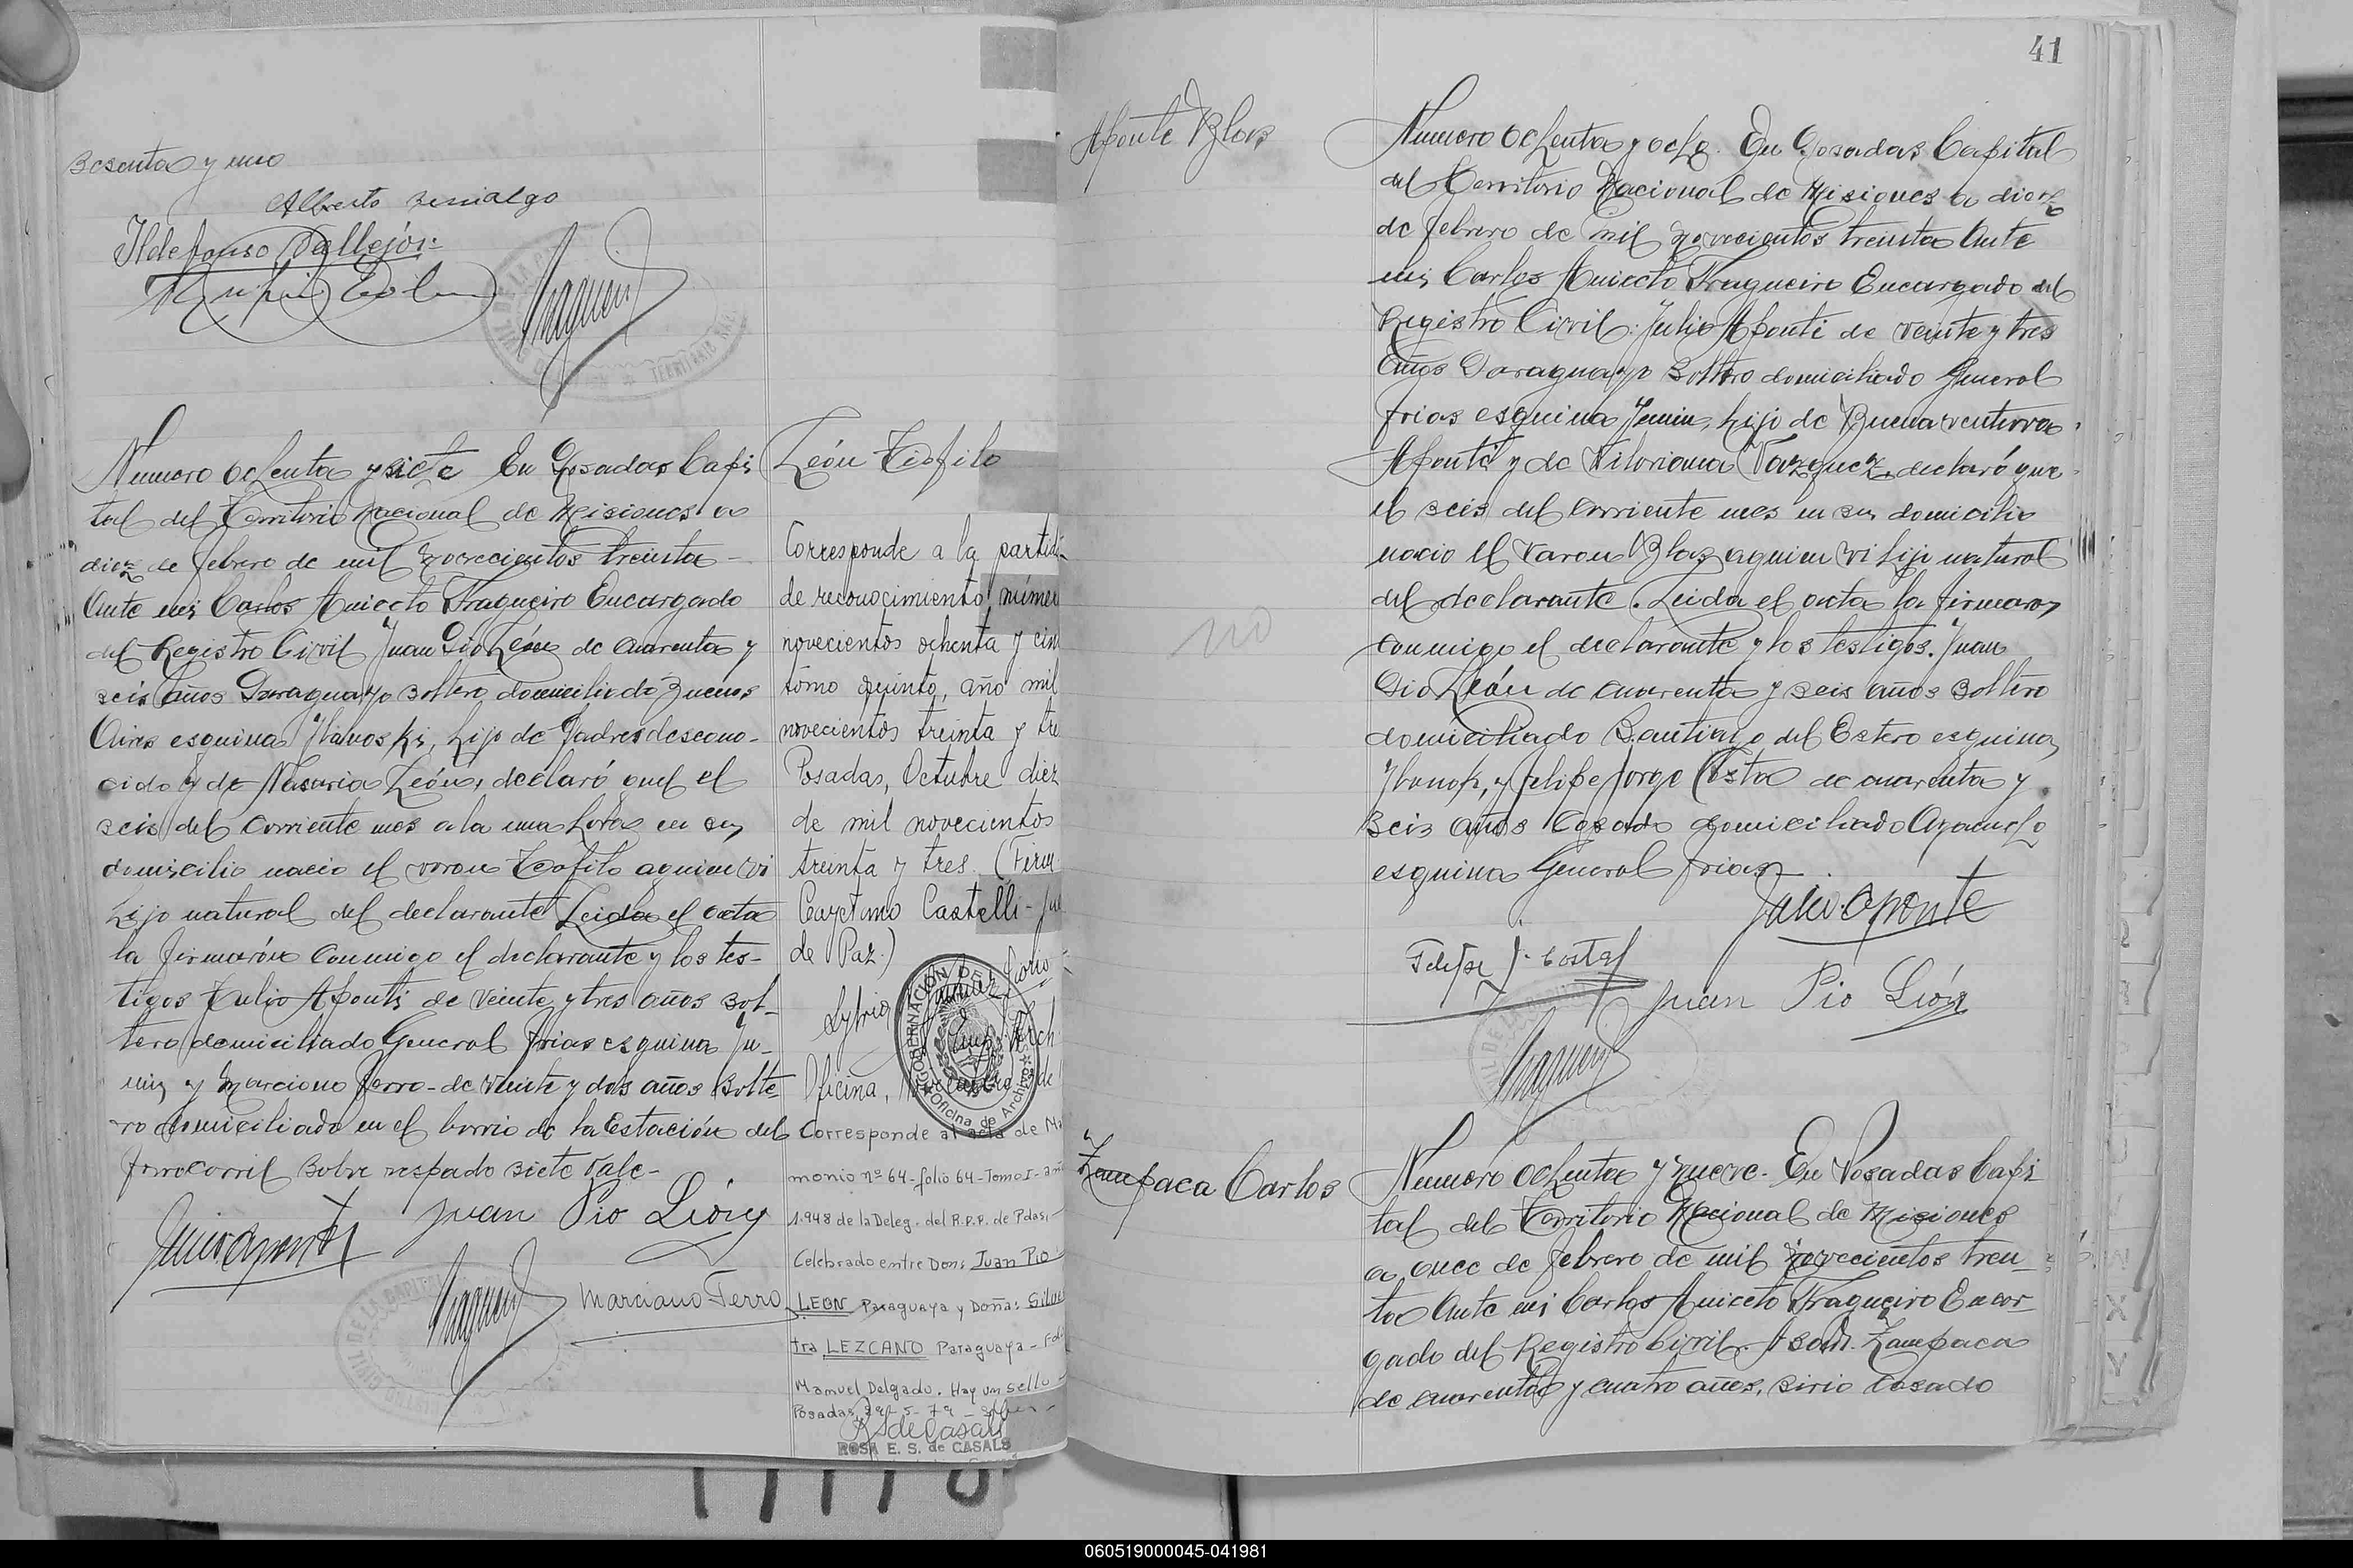 Sesenta y uno
Alberto
Ildefonso Vallejós.
León Teofilo
Numero ochenta y siete En Posadas Capi
tal del Territorio Nacional de Misiones a
diez de febrero de mil novecientos treinta
Ante mi Carlos Aniceto Fragueiro Encargado
del Registro Civil Juan Pio León de cuarenta y
seis años Paraguayo soltero domiciliado Buenos
Aires esquina , hijo de Padre descono-
cido y de León, declaró que el
seis del corriente mes a la una hora en su
domicilio nacio el varon Teofilo a quien vi
hijo natural del declarante Leida el acta
la firmarón conmigo el declarante y los tes-
tigos Julio Aponti de veinte y tres años sol-
tero domiciliado General frias esquina Ju-
nin y Marciano ferro de veinte y dos años solte-
ro domiciliado en el barrio de la Estación del
ferrocarril Sobre respado siete Vale-
Julio Aponte
Juan Pio León
Marciano Ferro
Corresponde a la partid
de reconocimiento númer
novecientos ochenta y cin
tomo quinto, año mil
novecientos treinta y tre
Posadas, Octubre diez
de mil novecientos
treinta y tres. (Firm
Cayetano Castelli- Jue
de Paz.)
Oficina, de
GOBERNACIÓN DE
Oficina de Archivo
Corresponde al acta de Ma
monio nº 64 - folio 64 - Tomo I - añ
1.948 de la Deleg. del R.P.P. de Pdas,
Celebrado entre Don: Juan Pio
LEON Paraguaya y Doña: Silve
tra LEZCANO Paraguaya - Fdo
Manuel Delgado. Hay un sello
Posadas, 29-5-79
R S de Casals
ROSA E. S. de CASALS
41
Aponte Blas
Numero Ochenta y ocho. En Posadas Capital
del Territorio Nacional de Misiones a diez
de febrero de mil novecientos treinta Ante
mi Carlos Aniceto Fragueiro Encargado del
Registro Civil: Julio Aponti de veinte y tres
años Paraguayo soltero domiciliado General
frias esquina Junin, hijo de Buenaventura
Aponti y de Vitoriana Vazquez, declaró que
el seis del corriente mes en su domicilio
nacio el varon Blaz a quien vi hijo natural
del declarante. Leida el acta la firmaron
conmigo el declarante y los testigos. Juan
Pio León de cuarenta y seis años soltero
domiciliado Santiago del Estero esquina
y felipe Jorge Costa de cuarenta y
seis años Casado domiciliado Ayacucho
esquina General frias
Julio Aponte
Felipe J. Costa
Juan Pio León
no
Zampaca Carlos
Numero Ochenta y nueve. En Posadas Capi
tal del Territorio Nacional de Misiones
a once de febrero de mil novecientos trein
ta Ante mi Carlos Aniceto Fragueiro Encar
gado del Registro Civil. Zampaca
de cuarenta y cuatro años, sirio casado
060519000045-041981